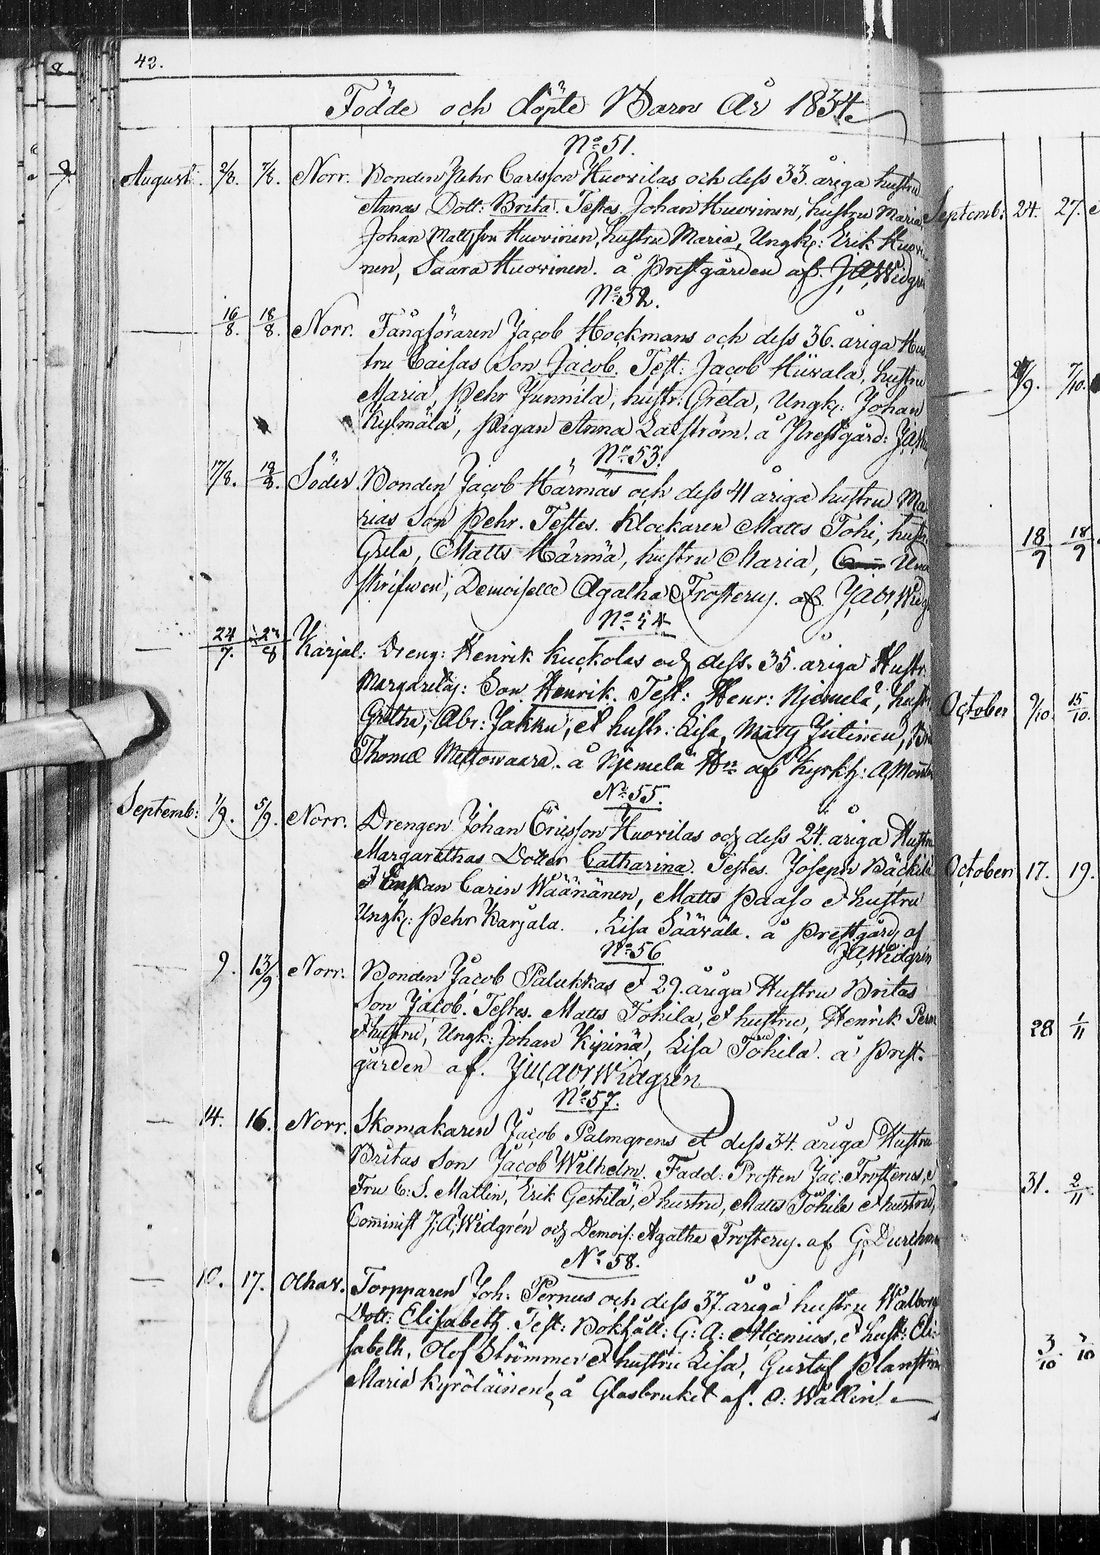 42.
Födde och döpte Barn År 1834.
No 51.
August. 2/8. 7/8. Norr. Bonden Pehr Carlsson Huovilas och dess 33. åriga hustru
Annas Dott: Brita. Testes Johan Huovinen, hustru Maria
Johan Mattsson Huovinen, hustru Maria, Ungk: Erik Huovi-
nen, Saara Huovinen. å Prestgården af J,A,Widgrén
No 52.
16/8. 18/8. Norr. Fångföraren Jacob Höckmans och dess 36. åriga Hus
tru Caisas Son Jacob. Test: Jacob hustru
Maria, Pehr Junnila, hustr: Greta, Ungk: Johan
Kylmälä, Pigan Anna å Prestgård:
No 53.
17/8. 18/8. Söder. Bonden Jacob Härmäs och dess 41 åriga hustru Ma
rias Son Pehr. Testes. Klockaren Matts Töhi, hustr
Greta, Matts Härmä, hustru Maria,
Demoiselle Agatha Frosterus. af
No 54
24/7. 27/8 Karjal: Dreng: Henrik Kuckolas och dess 35. åriga Hustr.
Margaretas: Son Henrik. Test: Henr: Njemelä, hustr
Gretha, Abr: Jakku, et hustr: Lisa, Matts
Thomæ Mettowaara. å Njemelä af Kyrkh:
No 55.
Septemb: 1/9. 5/9. Norr. Drengen Johan Ericsson Huovilas och dess 24. åriga Hustru
Margarethas Dotter Catharina. Testes. Joseph Bäckilä
Enkan Carin Wäänänen, Matts Paaso et hustru
Ungk: Pehr Karjala. Lisa Säävälä. å Prestgård, af
J,A,Widgrén
No 56
9. 13/9 Norr. Bonden Jacob Palukkas et 29. åriga Hustru Britas
Son Jacob. Testes. Matts Töhila, et hustru, Henrik
et hustru, Ungk: Johan Kipinä, Lisa Töhila. å Prest-
gården af. Widgrén
No 57.
14. 16. Norr. Skomakaren Jacob Palmgrens et dess 34. åriga Hustru
Britas Son Jacob Wilhelm. Fadd: Prosten Jac: Frosterus, et
Fru C: S. Matlin, Erik Gestilä, et hustru, Matts Töhila et hustru,
Cominist J,A,Widgrén och Demois: Agatha Frosterus. af G,
No 58.
10. 17. Olhav. Torpparen Joh: Pernus och dess 37. åriga hustru Walborg
Dott: Elisabeth. Test: Bokhåll: G: A: Alcenius, et hust: Eli:
sabeth, Olof Strömmer et hustru Lisa, Gustaf
Maria Kyröläinen, å Glasbruket af. O: Wallin.
Septemb: 24. 27.
7/10.
18/7 18/7
October 9/10. 15/10.
October 17. 19.
28 1/11
31. 2/11
3/10. 7/10